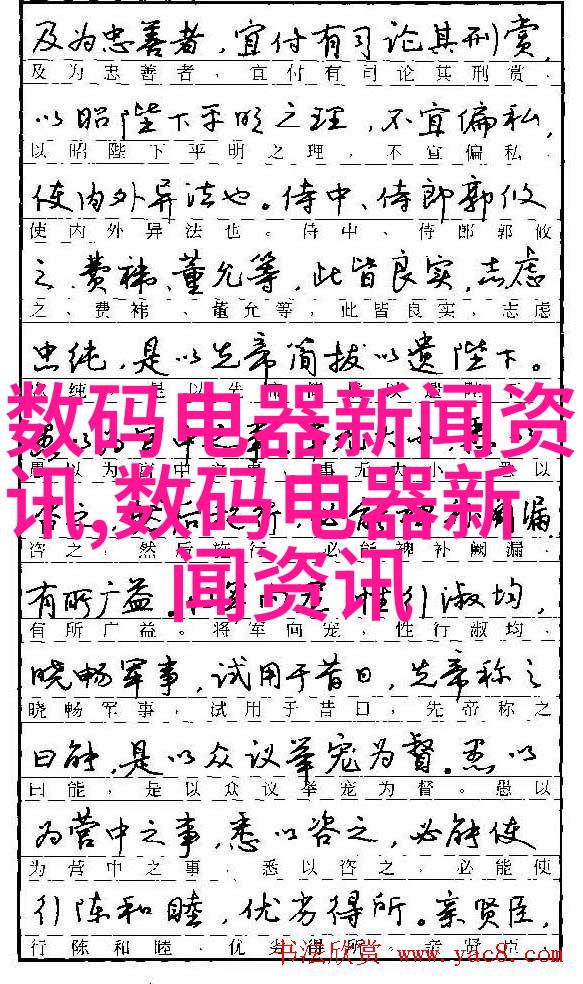 及为忠善者，宜付有司论其刑赏，
及为忠善者，宜付有司论其刑赏，
以昭陛下平明之理，不宜偏私，
以昭陛下平明之理，不宜偏私，
使内外异法也。侍中、侍郎郭攸
使内外异法也。侍中、侍郎郭攸
之、费祎、董允等，此皆良实，志虑
之、费祎、董允等，此皆良实，志虑
忠纯，是以先帝简拔以遗陛下。
数码电器新闻资
讯,数码电器新
闻资讯
愚以为宫中之事，事无大小，悉以
咨之，然后施行，必能裨补阙漏，
咨之，然后施行，必能裨补阙漏，
有所广益。
有所广益。将军向宠，性行淑均，
晓畅军事，试用于昔日，先帝称之
晓畅军事，试用于昔日，先帝称之
曰能，是以众议举宠为督。愚以
曰能，是以众议举宠为督。愚以
为营中之事，悉以咨之，必能使
为营中之事，悉以咨之，必能使
行陈和睦，优劣得所。亲贤臣，
行陈和睦，优劣得所。亲贤臣，
书法欣赏 www.yac8.com